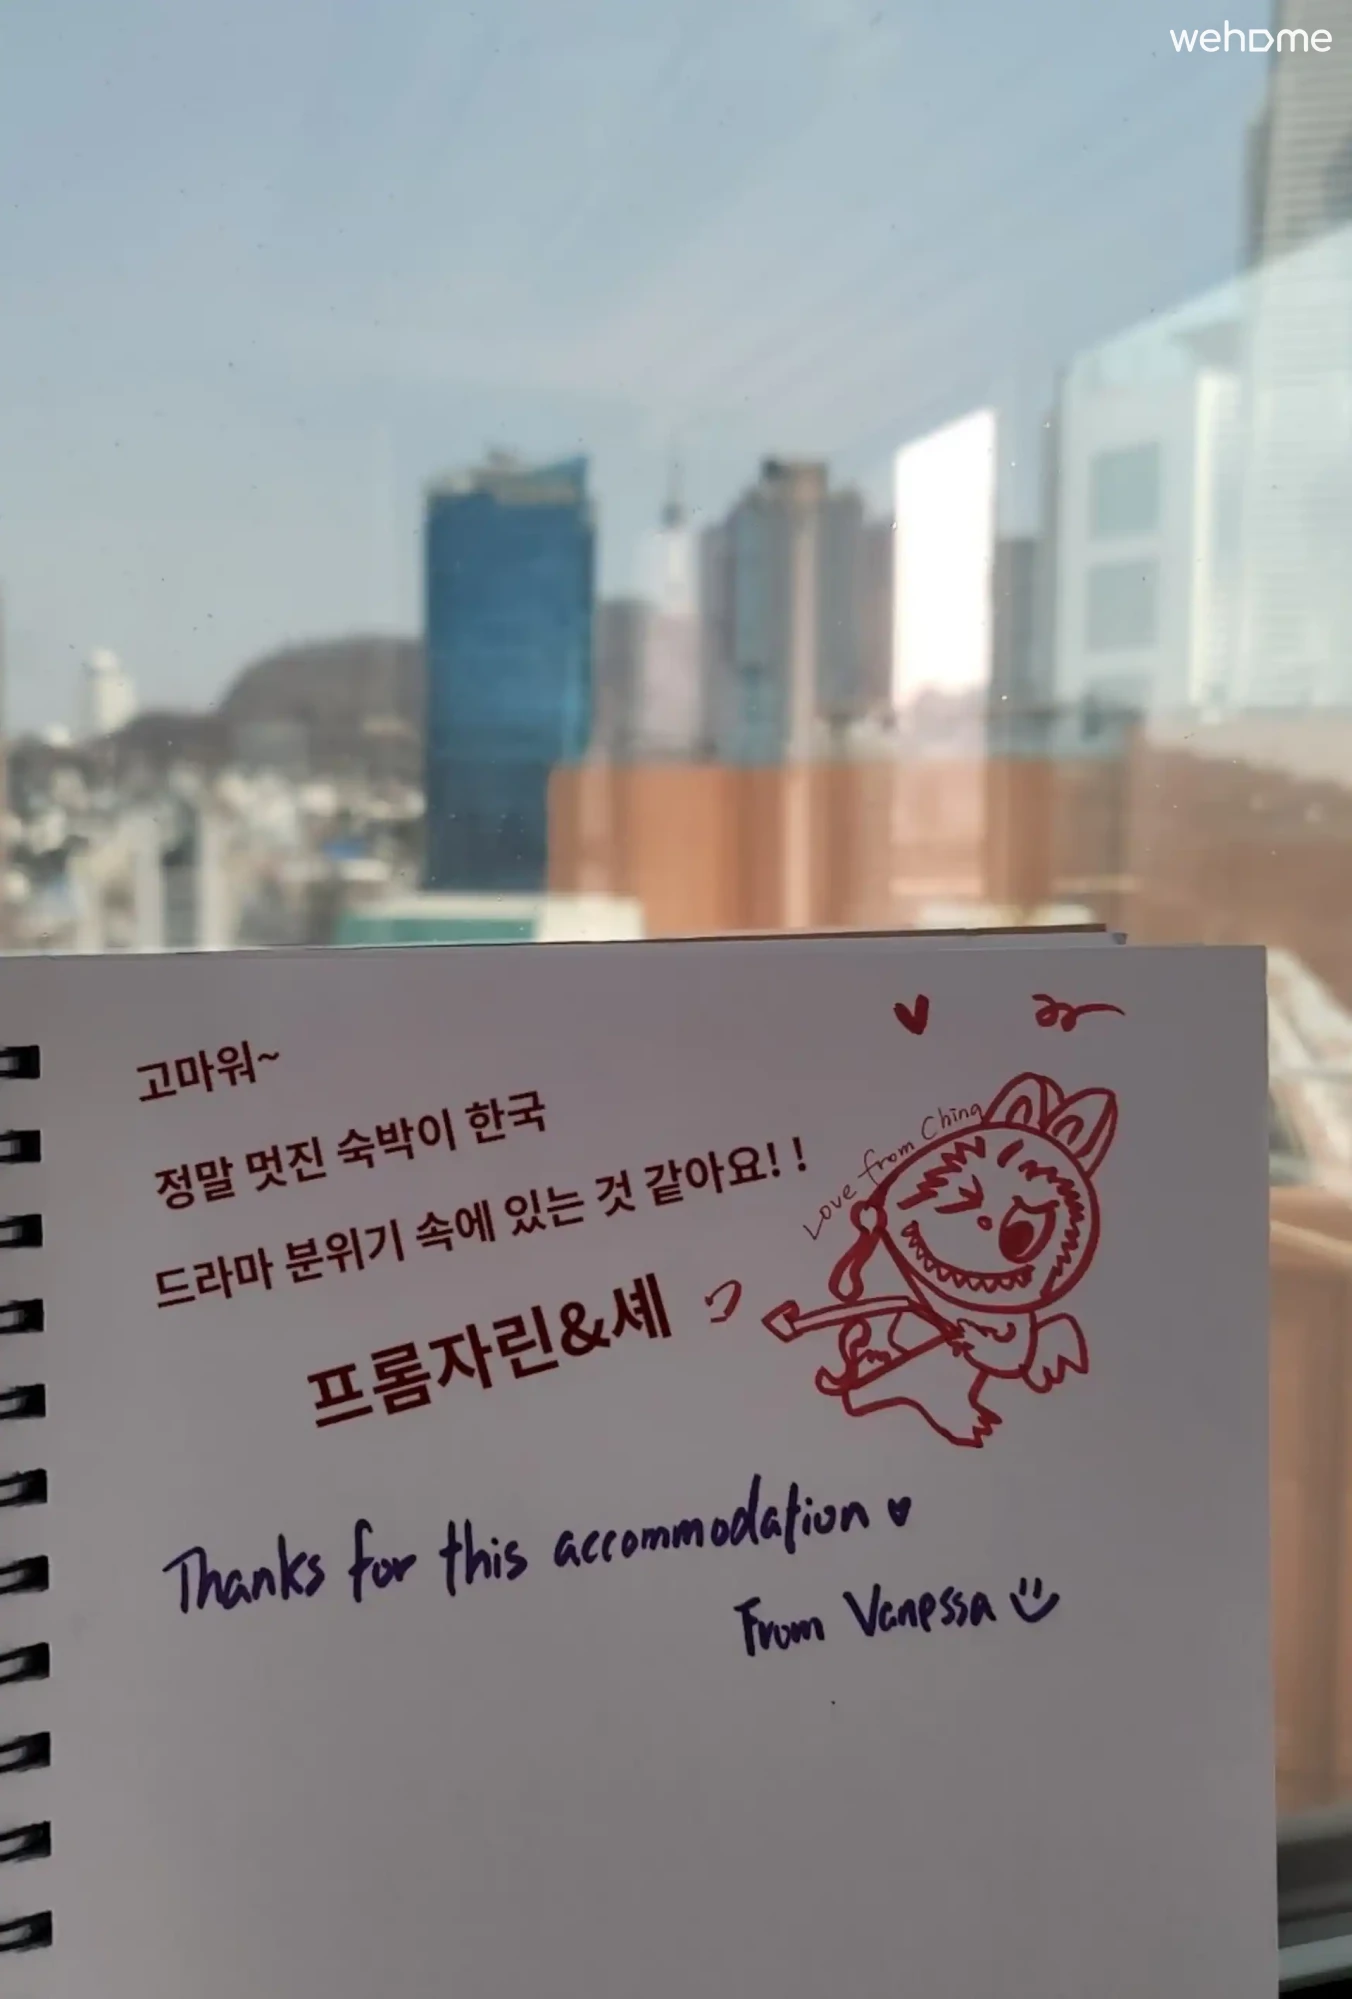 wehome
고마워~
정말 멋진 숙박이 한국
드라마 분위기 속에 있는 것 같아요! !
프롬자린&셰
Love from China
Thanks for this accommodation ♥
From Vanessa